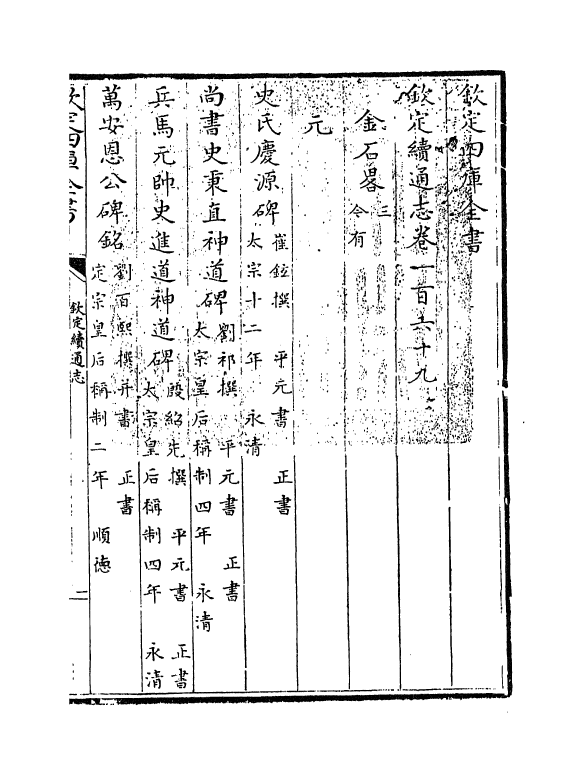 欽定四庫全書
欽定續通志卷一百六十九
金石畧三
今有
元
史氏慶源碑 崔鉉撰 平元書 正書
太宗十二年 永清
尚書史秉直神道碑 劉祁撰 平元書 正書
太宗皇后稱制四年 永清
兵馬元帥史進道神道碑 段紹先撰 平元書 正書
太宗皇后稱制四年 永清
萬安恩公碑銘 劉百熙撰并書 正書
定宗皇后稱制二年 順德
欽定四庫全書
欽定續通志